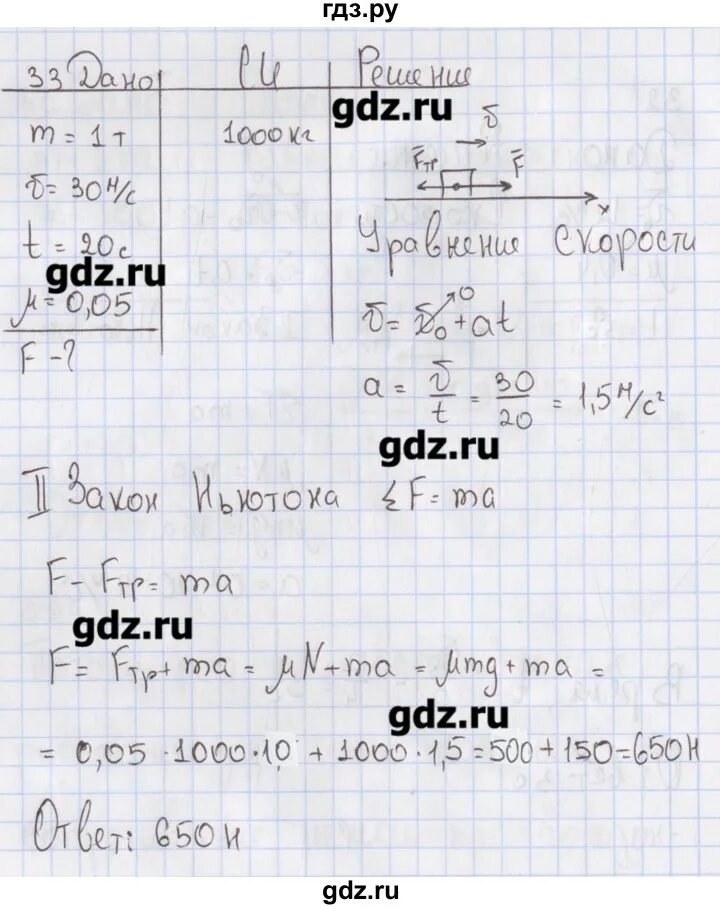 гдз.ру
33 Дано СИ Решение
gdz.ru
m = 1 т 1000 кг
υ
Fтр F
υ = 30 м/с
x
t = 20 с
Уравнение скорости
gdz.ru
μ = 0,05
υ = υ₀ + at
0
F - ?
a = υ/t = 30/20 = 1,5 м/с²
gdz.ru
II Закон Ньютона ΣF = ma
F - Fтр = ma
gdz.ru
F = Fтр + ma = μN + ma = μmg + ma =
gdz.ru
= 0,05 · 1000 · 10 + 1000 · 1,5 = 500 + 150 = 650 Н
Ответ: 650 Н
gdz.ru